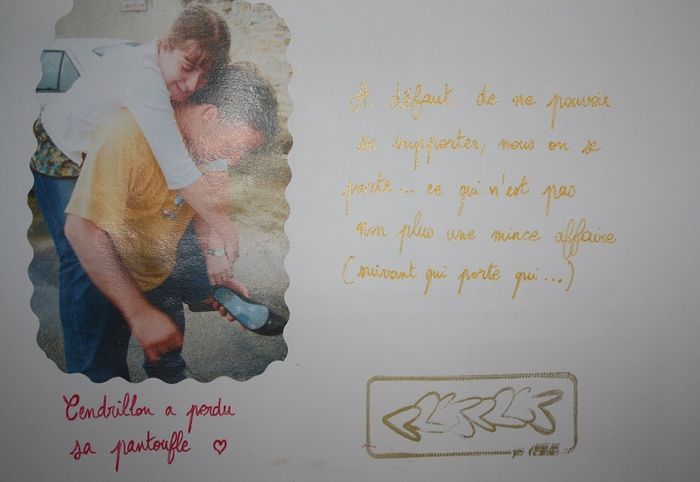 A défaut de ne pouvoir
se supporter, nous on se
porte... ce qui n'est pas
non plus une mince affaire
(suivant qui porte qui...)
Cendrillon a perdu
sa pantoufle ♡